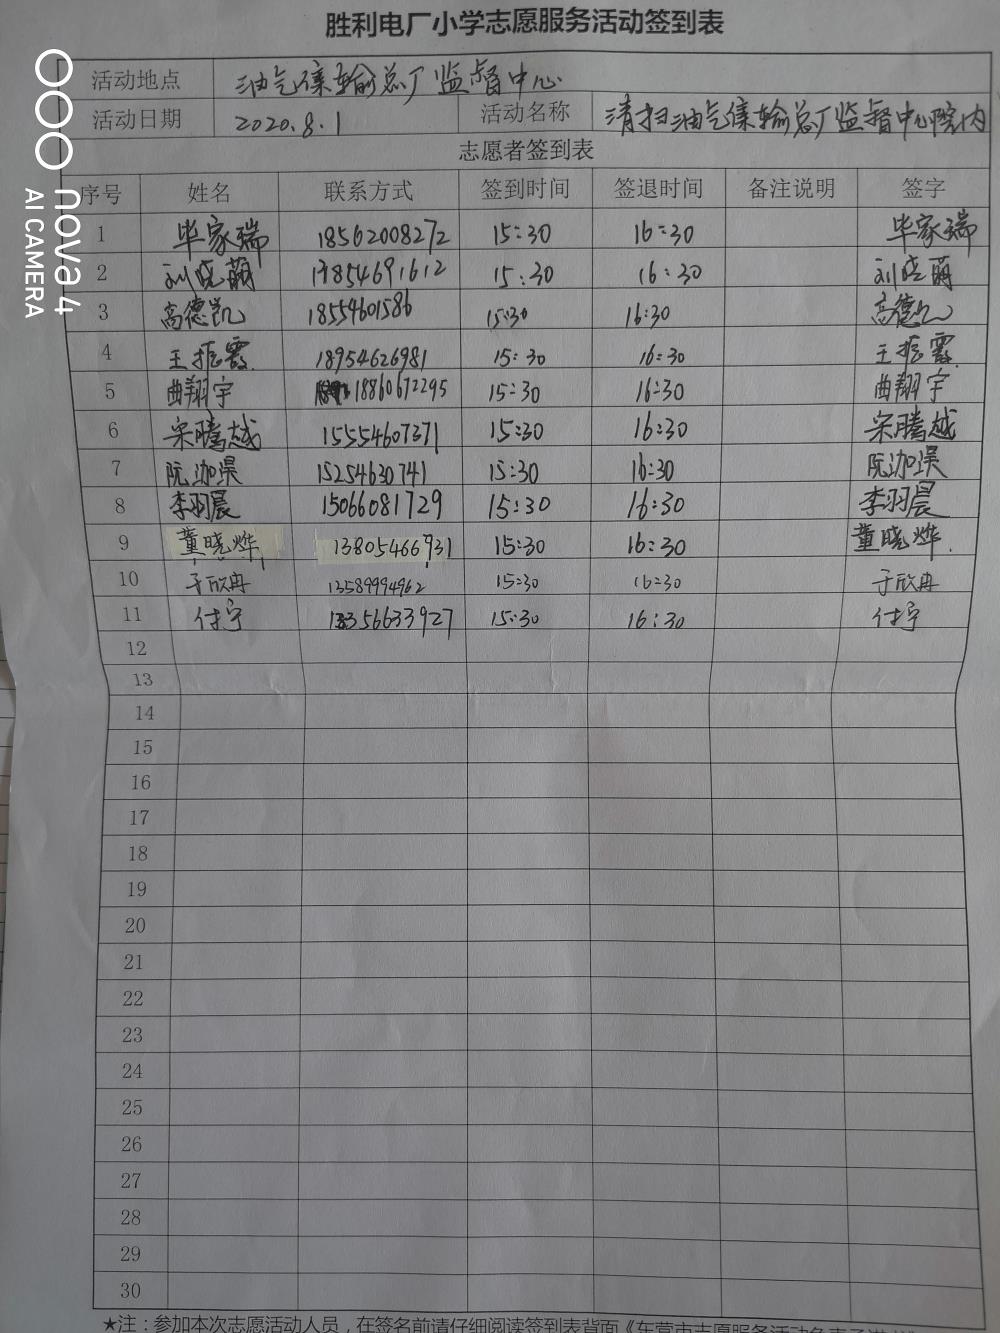 胜利电厂小学志愿服务活动签到表
活动地点 油气集输总厂监督中心
活动日期 2020.8.1 活动名称 清扫油气集输总厂监督中心院内
志愿者签到表
序号 姓名 联系方式 签到时间 签退时间 备注说明 签字
1 毕家瑞 18562008272 15:30 16:30 毕家瑞
2 刘晓萌 13854691612 15:30 16:30 刘晓萌
3 高德凯 18554601586 15:30 16:30 高德凯
4 王振霞 18954626981 15:30 16:30 王振霞
5 曲翔宇 18860672295 15:30 16:30 曲翔宇
6 宋腾越 15554607371 15:30 16:30 宋腾越
7 阮泇淏 15254630741 15:30 16:30 阮泇淏
8 李羽晨 15066081729 15:30 16:30 李羽晨
9 董晓烨 15:30 16:30 董晓烨
10 于欣冉 13589994962 15:30 16:30 于欣冉
11 付宇 13356633927 15:30 16:30 付宇
12
13
14
15
16
17
18
19
20
21
22
23
24
25
26
27
28
29
30
★注：参加本次志愿活动人员，在签名前请仔细阅读签到表背面《东营市志愿服务活动
nova 4
AI CAMERA